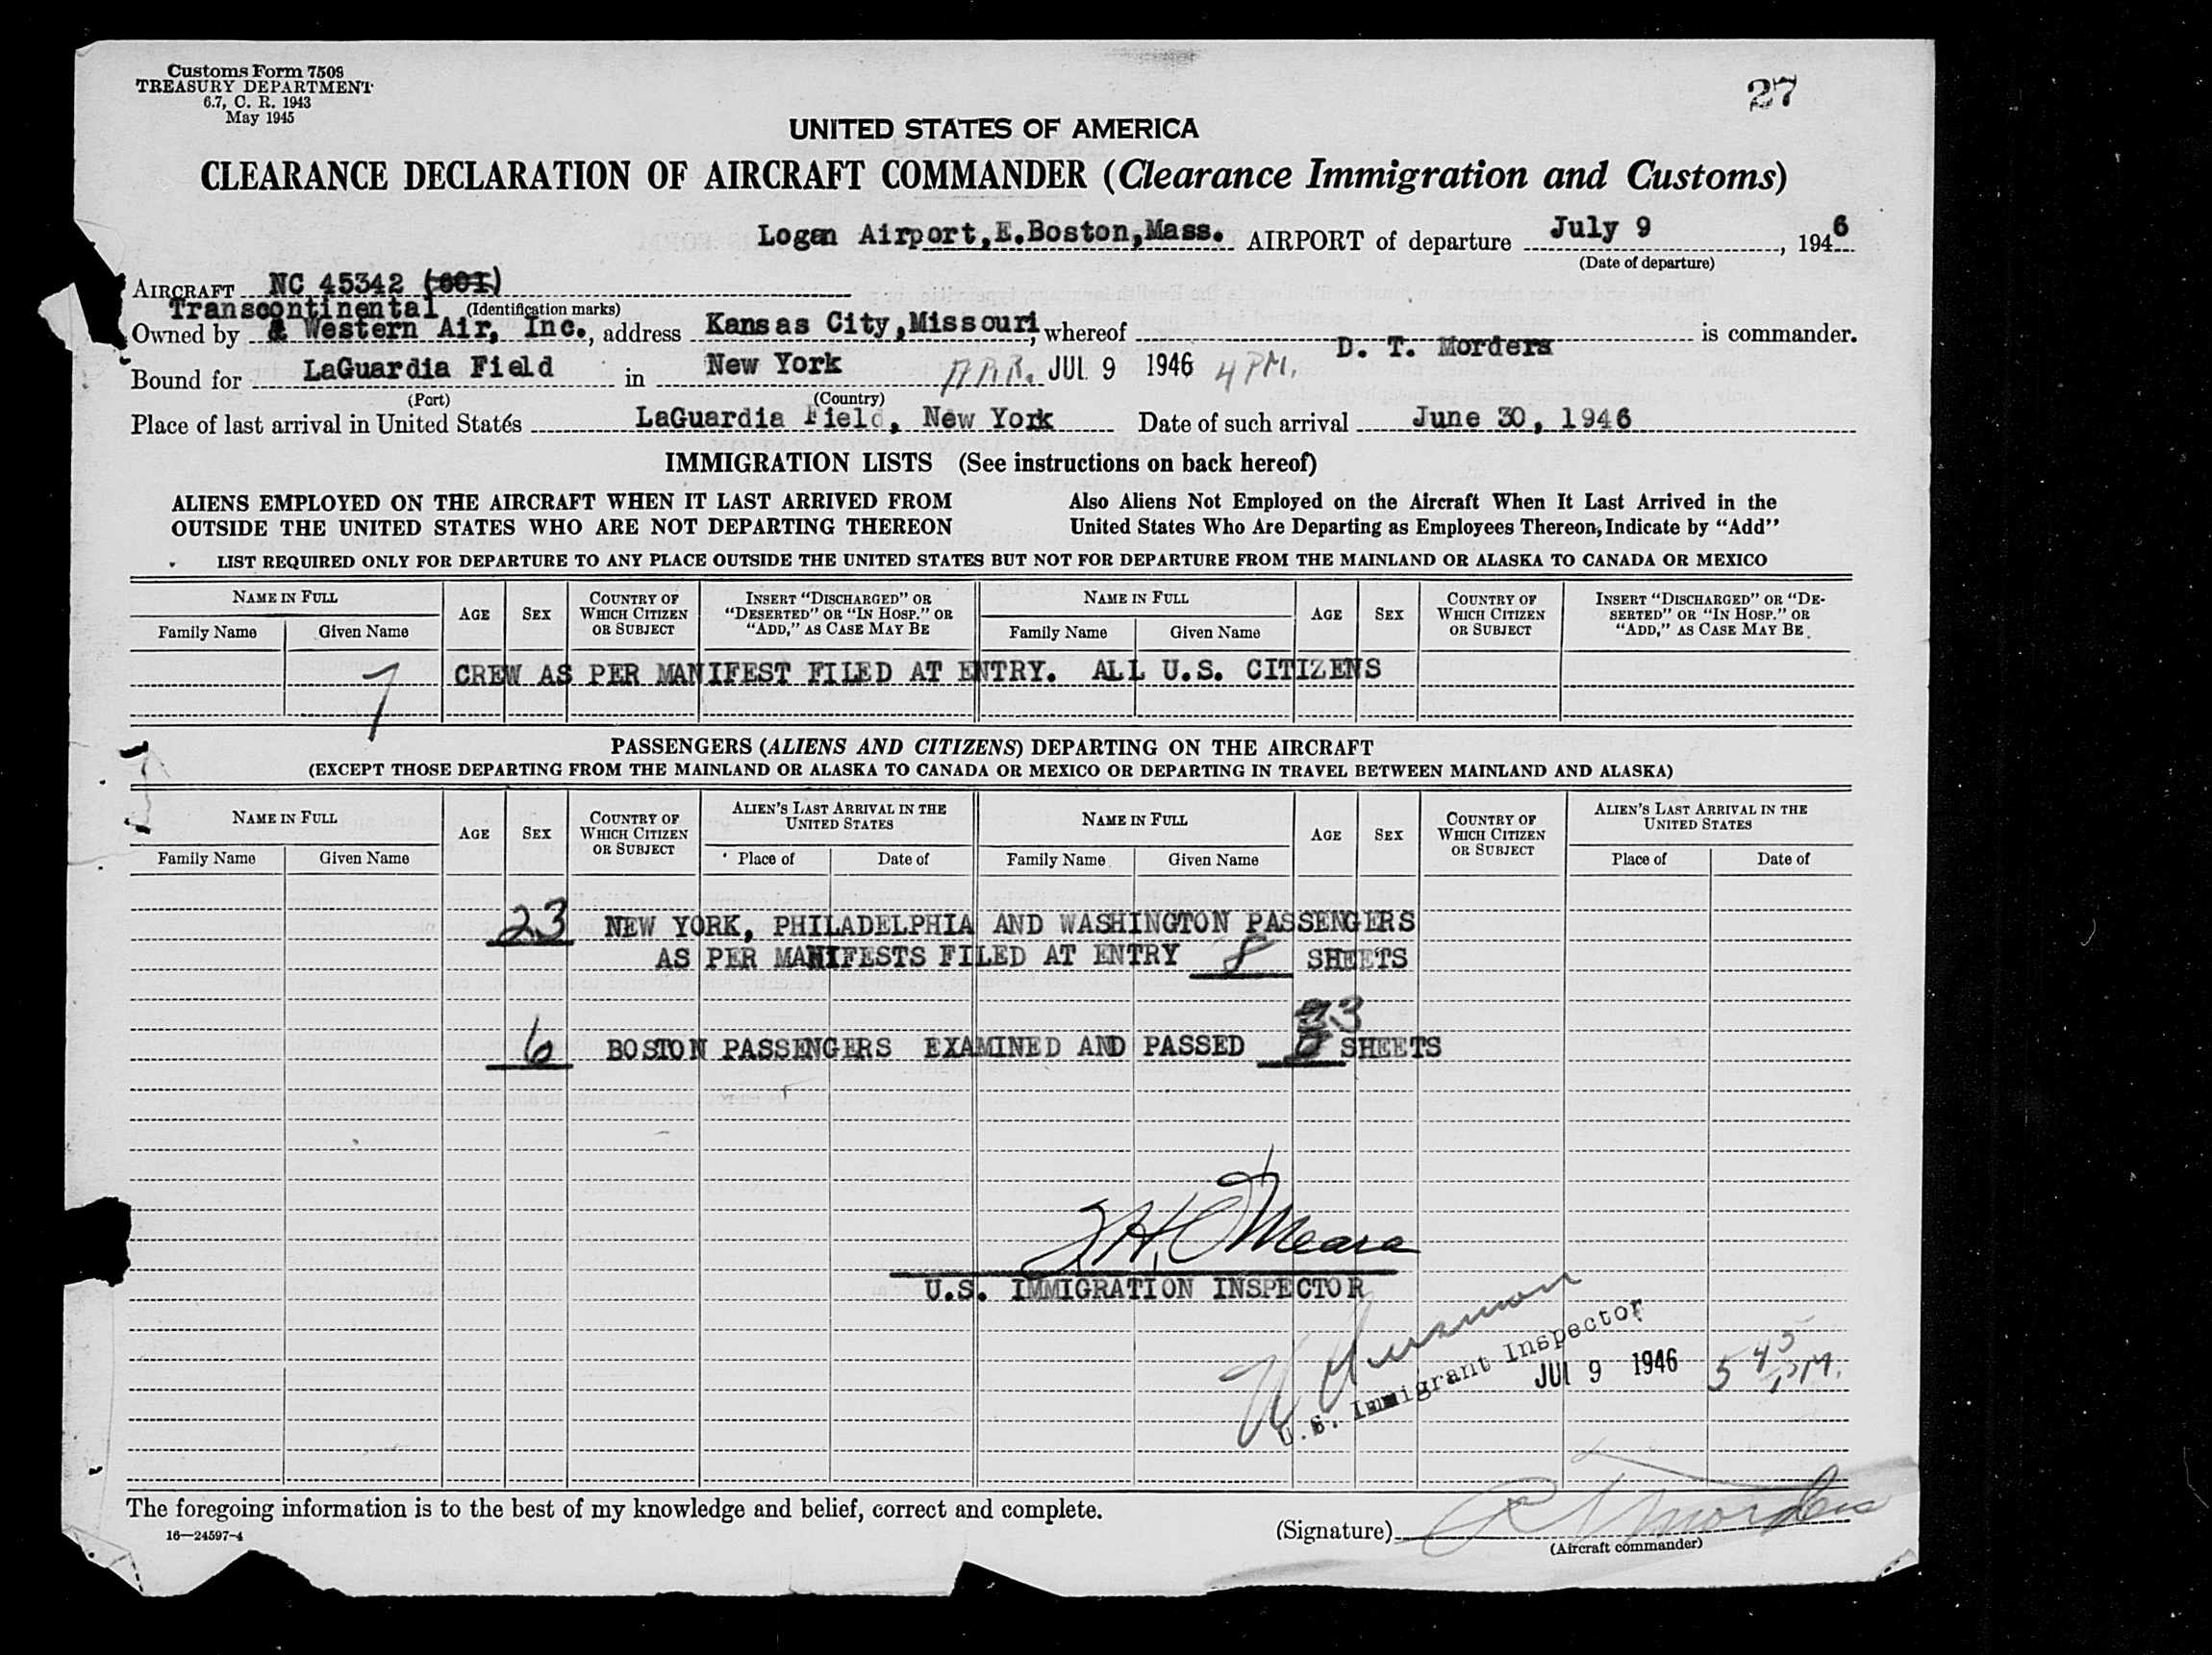 Customs Form 7509
TREASURY DEPARTMENT
6.7, C. R. 1943
May 1945
27
UNITED STATES OF AMERICA
CLEARANCE DECLARATION OF AIRCRAFT COMMANDER (Clearance Immigration and Customs)
Logan Airport, E. Boston, Mass. AIRPORT of departure July 9, 1946
(Date of departure)
AIRCRAFT NC 45342 (601)
(Identification marks)
Transcontinental
Owned by & Western Air, Inc., address Kansas City, Missouri, whereof D. T. Morders is commander.
Bound for LaGuardia Field in New York ARR. JUL 9 1946 4 PM.
(Port) (Country)
Place of last arrival in United States LaGuardia Field, New York Date of such arrival June 30, 1946
IMMIGRATION LISTS (See instructions on back hereof)
ALIENS EMPLOYED ON THE AIRCRAFT WHEN IT LAST ARRIVED FROM
OUTSIDE THE UNITED STATES WHO ARE NOT DEPARTING THEREON
Also Aliens Not Employed on the Aircraft When It Last Arrived in the
United States Who Are Departing as Employees Thereon, Indicate by "Add"
LIST REQUIRED ONLY FOR DEPARTURE TO ANY PLACE OUTSIDE THE UNITED STATES BUT NOT FOR DEPARTURE FROM THE MAINLAND OR ALASKA TO CANADA OR MEXICO
NAME IN FULL
Family Name Given Name
AGE
SEX
COUNTRY OF
WHICH CITIZEN
OR SUBJECT
INSERT "DISCHARGED" OR
"DESERTED" OR "IN HOSP." OR
"ADD," AS CASE MAY BE
NAME IN FULL
Family Name Given Name
AGE
SEX
COUNTRY OF
WHICH CITIZEN
OR SUBJECT
INSERT "DISCHARGED" OR "DE-
SERTED" OR "IN HOSP." OR
"ADD," AS CASE MAY BE
7 CREW AS PER MANIFEST FILED AT ENTRY. ALL U.S. CITIZENS
PASSENGERS (ALIENS AND CITIZENS) DEPARTING ON THE AIRCRAFT
(EXCEPT THOSE DEPARTING FROM THE MAINLAND OR ALASKA TO CANADA OR MEXICO OR DEPARTING IN TRAVEL BETWEEN MAINLAND AND ALASKA)
NAME IN FULL
Family Name Given Name
AGE
SEX
COUNTRY OF
WHICH CITIZEN
OR SUBJECT
ALIEN'S LAST ARRIVAL IN THE
UNITED STATES
Place of Date of
NAME IN FULL
Family Name Given Name
AGE
SEX
COUNTRY OF
WHICH CITIZEN
OR SUBJECT
ALIEN'S LAST ARRIVAL IN THE
UNITED STATES
Place of Date of
23 NEW YORK, PHILADELPHIA AND WASHINGTON PASSENGERS
AS PER MANIFESTS FILED AT ENTRY 8 SHEETS
3
6 BOSTON PASSENGERS EXAMINED AND PASSED SHEETS
O'Meara
U.S. IMMIGRATION INSPECTOR
U.S. Immigrant Inspector
JUL 9 1946 5 45 P.M.
The foregoing information is to the best of my knowledge and belief, correct and complete.
16—24597-4
(Signature) Morders
(Aircraft commander)